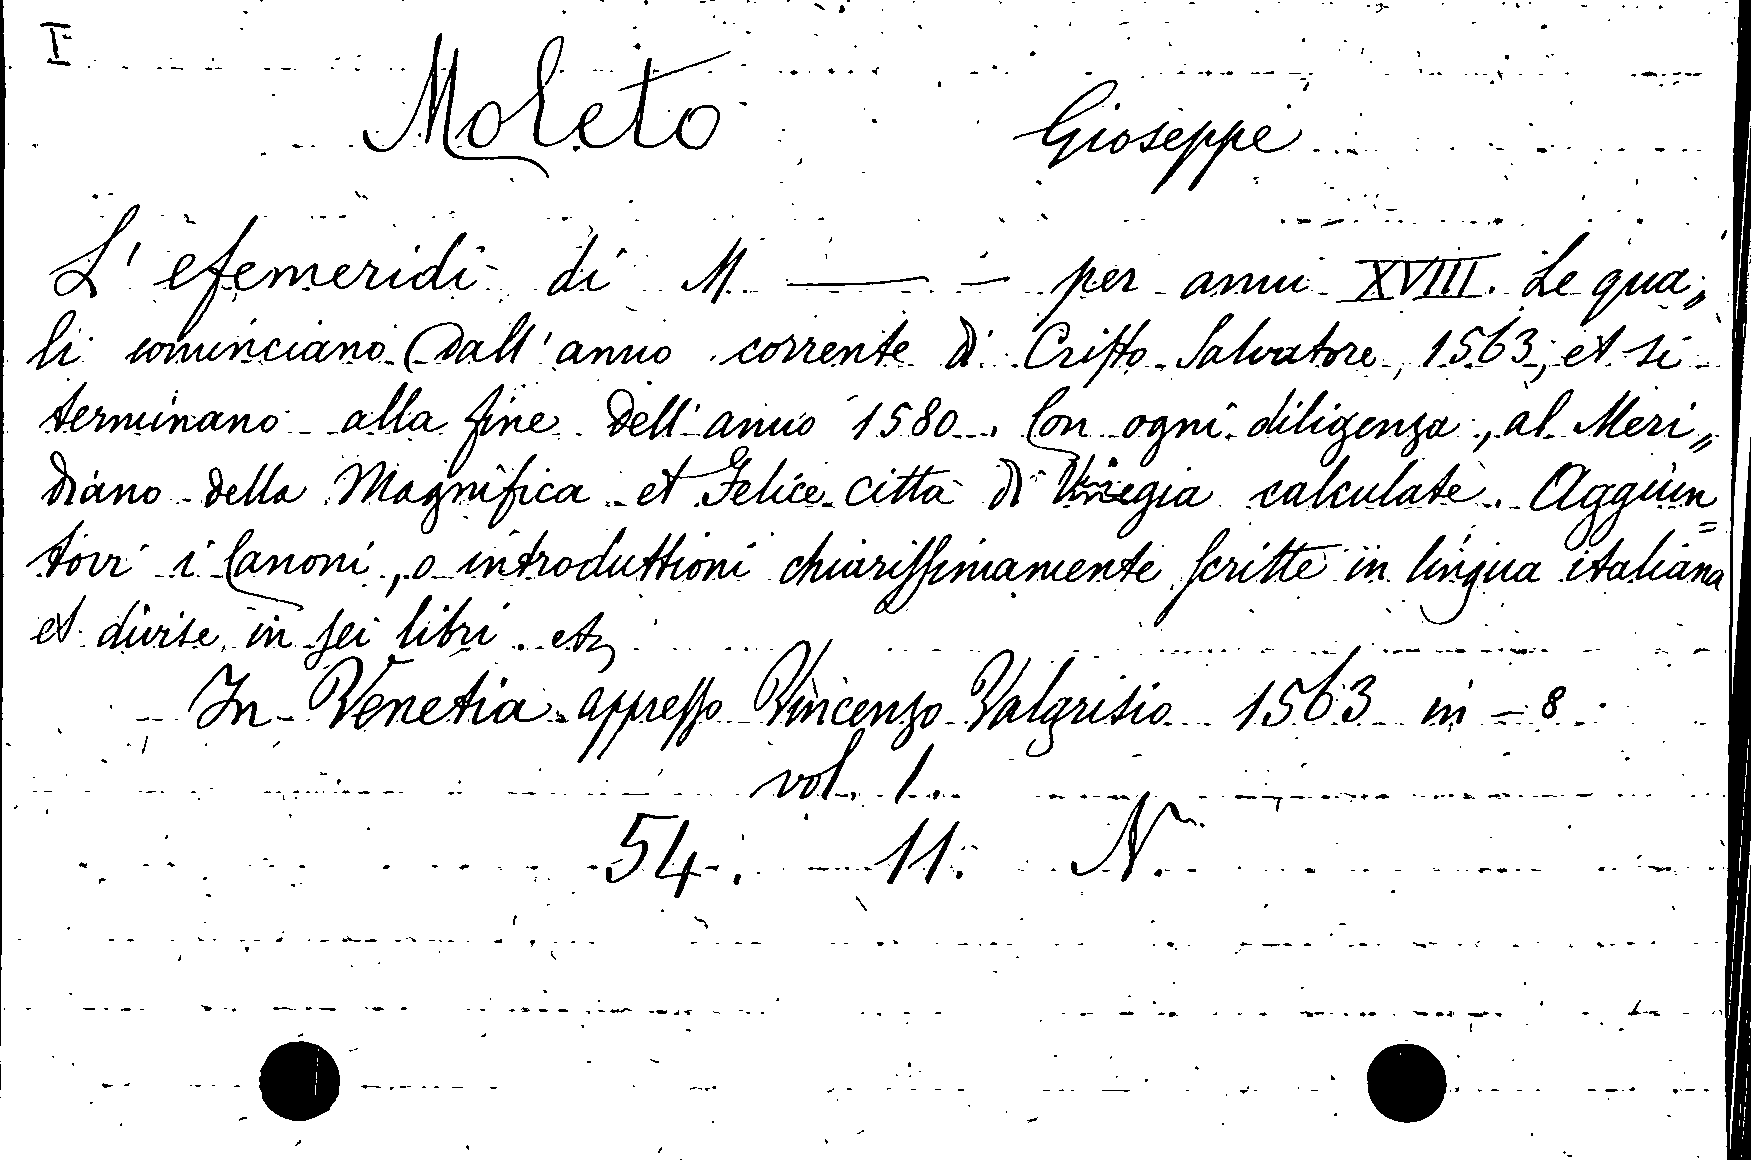 I
Moleto Gioseppe
L' efemeridi di M. —— — per anni XVIII. Le qua„
li cominciano dall' anno corrente di Cristo Salvatore, 1563, et si
terminano alla fine dell' anno 1580. Con ogni diligenza, al Meri„
diano della Magnifica et Felice città di Vinegia calculate. Aggiun=
tovi i Canoni, o introduttioni chiarissimamente scritte in lingua italiana
et divise in sei libri. etc
In Venetia appresso Vincenzo Valgrisio 1563 in - 8
vol. 1.
54. 11. N.